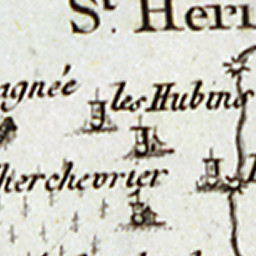 St. Heri
agnée
les Hubins
Cherchevrier